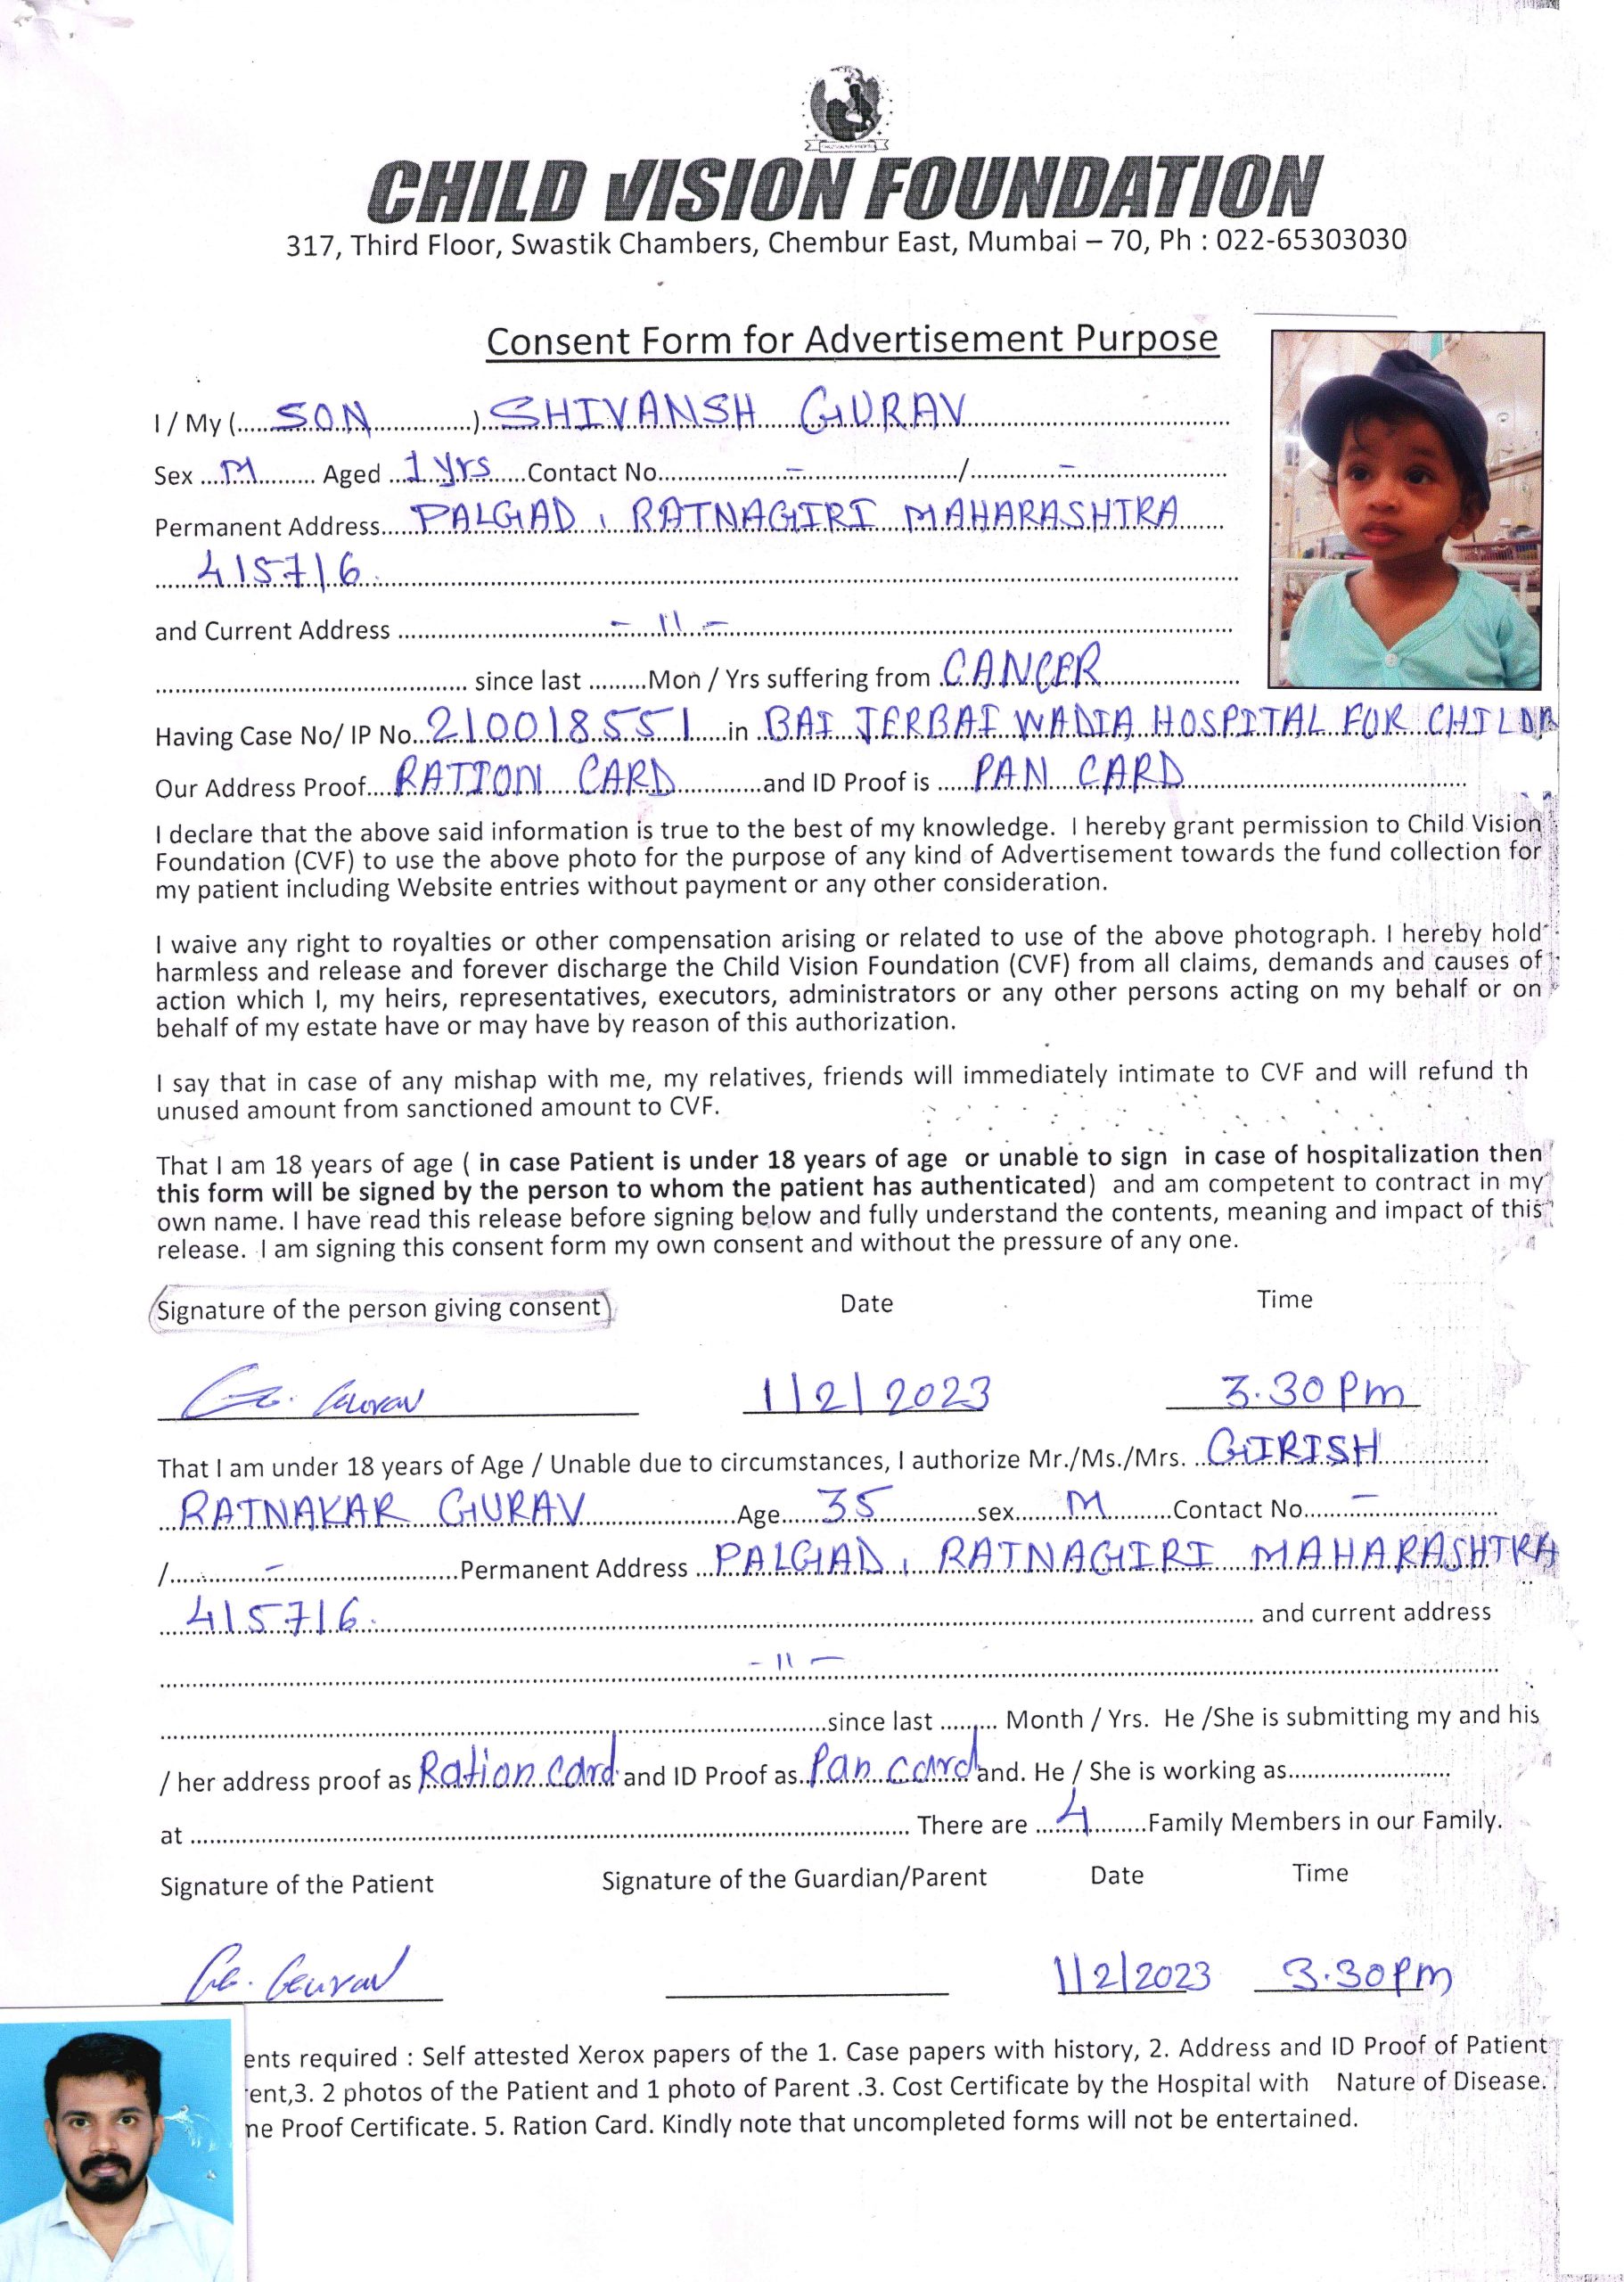 CHILD VISION FOUNDATION
317, Third Floor, Swastik Chambers, Chembur East, Mumbai – 70, Ph : 022-65303030
Consent Form for Advertisement Purpose
I / My (.....SON..............) SHIVANSH GURAV
Sex ...M......... Aged ...1 yrs.....Contact No...............-................./............-...................
Permanent Address....PALGAD, RATNAGIRI MAHARASHTRA
415716.
and Current Address ............................-..11..-............................
............................ since last .........Mon / Yrs suffering from CANCER
Having Case No/ IP No...210018551......in ..BAI JERBAI WADIA HOSPITAL FOR CHILDR
Our Address Proof....RATION CARD............and ID Proof is .....PAN CARD
I declare that the above said information is true to the best of my knowledge. I hereby grant permission to Child Vision
Foundation (CVF) to use the above photo for the purpose of any kind of Advertisement towards the fund collection for
my patient including Website entries without payment or any other consideration.
I waive any right to royalties or other compensation arising or related to use of the above photograph. I hereby hold
harmless and release and forever discharge the Child Vision Foundation (CVF) from all claims, demands and causes of
action which I, my heirs, representatives, executors, administrators or any other persons acting on my behalf or on
behalf of my estate have or may have by reason of this authorization.
I say that in case of any mishap with me, my relatives, friends will immediately intimate to CVF and will refund th
unused amount from sanctioned amount to CVF.
That I am 18 years of age ( in case Patient is under 18 years of age or unable to sign in case of hospitalization then
this form will be signed by the person to whom the patient has authenticated) and am competent to contract in my
own name. I have read this release before signing below and fully understand the contents, meaning and impact of this
release. I am signing this consent form my own consent and without the pressure of any one.
Signature of the person giving consent Date Time
Gurav 1/2/2023 3.30 Pm
That I am under 18 years of Age / Unable due to circumstances, I authorize Mr./Ms./Mrs. ..GIRISH
RATNAKAR GURAV....................Age......35............sex......M..........Contact No......-.............
/............-....................Permanent Address ...PALGAD, RATNAGIRI MAHARASHTRA
415716............................ and current address
- 11 -
............................since last ......... Month / Yrs. He /She is submitting my and his
/ her address proof as Ration card and ID Proof as..Pan card and. He / She is working as.......................
at ............................ There are ......4.........Family Members in our Family.
Signature of the Patient Signature of the Guardian/Parent Date Time
Gurav 1/2/2023 3.30pm
ents required : Self attested Xerox papers of the 1. Case papers with history, 2. Address and ID Proof of Patient
ent,3. 2 photos of the Patient and 1 photo of Parent .3. Cost Certificate by the Hospital with Nature of Disease.
ne Proof Certificate. 5. Ration Card. Kindly note that uncompleted forms will not be entertained.